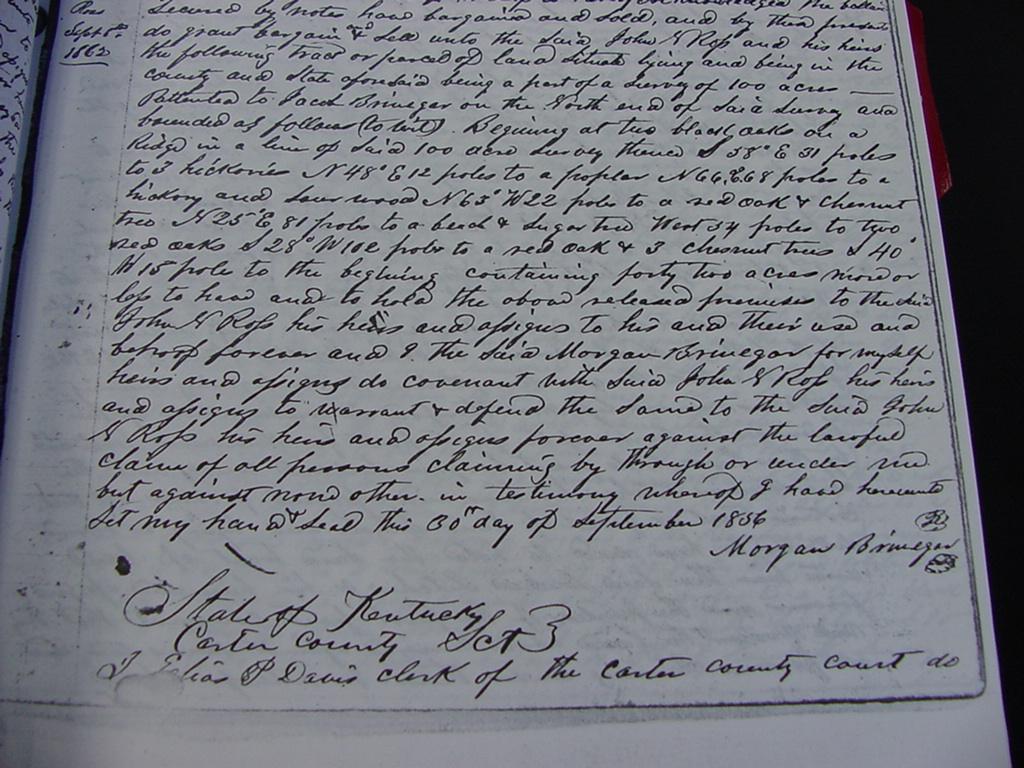 Ross
Sept 5th
1862
acknowledged the ballance
secured by notes have bargained and sold, and by these presents
do grant bargain & sell unto the said John N Ross and his heirs
the following tract or parcel of land situate lying and being in the
county and state aforesaid being a part of a survey of 100 acres
Pattented to Jacob Brineger on the North end of said survey and
bounded as follows (to wit). Begining at two black oaks on a
Ridge in a line of said 100 acre survey thence S 58° E 31 poles
to 3 hickories N 48° E 12 poles to a poplar N 66 E 68 poles to a
hickory and sour wood N 65° W 22 pole to a red oak & chesnut
tree N 25° E 81 poles to a beech & sugar tree West 54 poles to two
red oaks S 28° W 102 pole to a red oak & 3 chesnut trees S 40°
W 15 pole to the begining containing forty two acres more or
less to have and to hold the above released premises to the said
John N Ross his heirs and assigns to his and their use and
behoof forever and I the said Morgan Brinegar for myself
heirs and assigns do covenant with said John N Ross his heirs
and assigns to warrant & defend the same to the said John
N Ross his heirs and assigns forever against the lawful
claim of all persons claiming by through or under me
but against none other. in testimony whereof I have hereunto
set my hand & seal this 30th day of September 1856
Morgan Brinegar
State of Kentucky
Carter County Sct
I Elias P Davis clerk of the Carter county court do